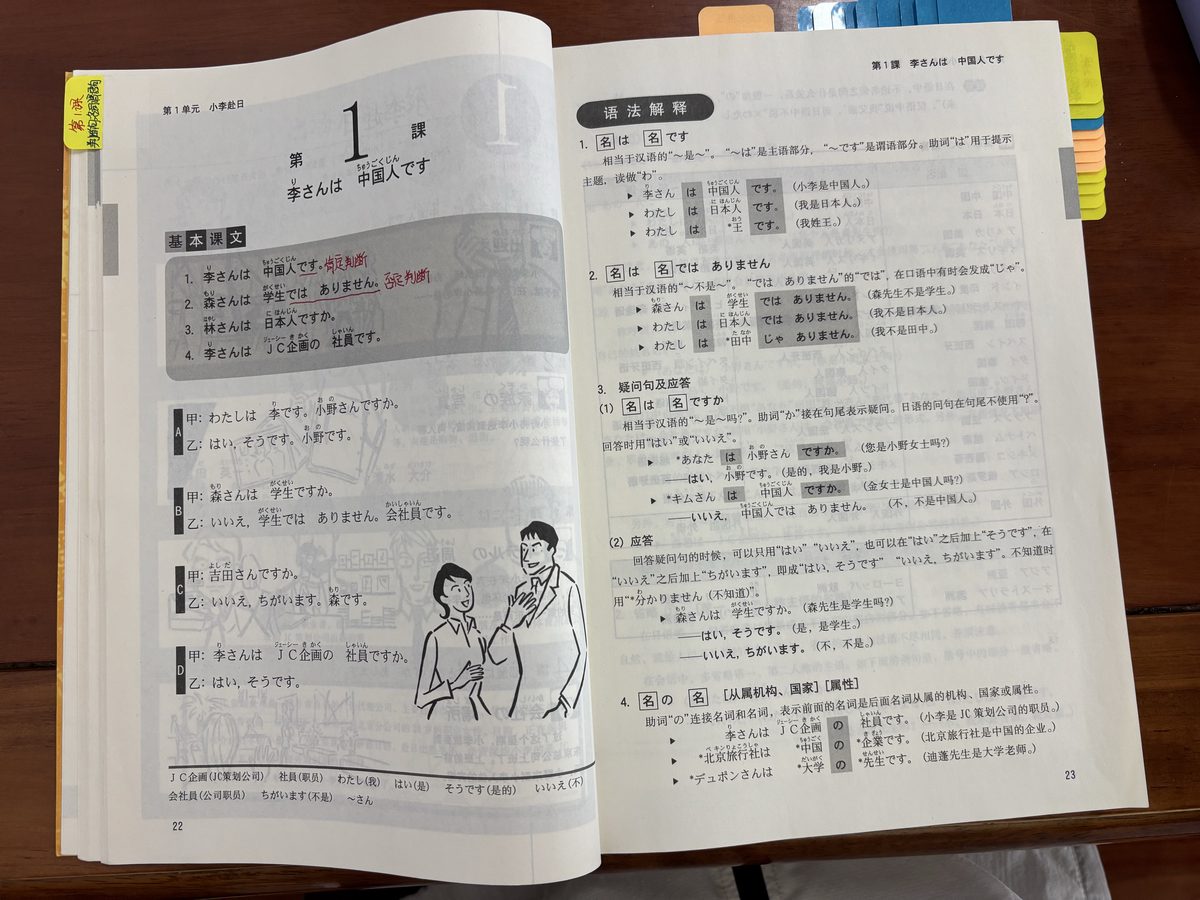 第1课
判断句·名词谓语句
第1单元　小李赴日
第 1 課
李さんは　中国人です
り　ちゅうごくじん
基本课文
1. 李さんは　中国人です。肯定判断
2. 森さんは　学生では　ありません。否定判断
3. 林さんは　日本人ですか。
4. 李さんは　ＪＣ企画の　社員です。
A
甲: わたしは　李です。小野さんですか。
乙: はい, そうです。小野です。
B
甲: 森さんは　学生ですか。
乙: いいえ, 学生では　ありません。会社員です。
C
甲: 吉田さんですか。
乙: いいえ, ちがいます。森です。
D
甲: 李さんは　ＪＣ企画の　社員ですか。
乙: はい, そうです。
ＪＣ企画(JC策划公司)　社員(职员)　わたし(我)　はい(是)　そうです(是的)　いいえ(不)
会社員(公司职员)　ちがいます(不是)　～さん
22
第1課　李さんは　中国人です
语法解释
1. 名は　名です
相当于汉语的“～是～”。“～は”是主语部分，“～です”是谓语部分。助词“は”用于提示
主题，读做“わ”。
▶ 李さん　は　中国人　です。(小李是中国人。)
▶ わたし　は　日本人　です。(我是日本人。)
▶ わたし　は　*王　です。(我姓王。)
2. 名は　名では　ありません
相当于汉语的“～不是～”。“では　ありません”的“では”，在口语中有时会发成“じゃ”。
▶ 森さん　は　学生　では　ありません。(森先生不是学生。)
▶ わたし　は　日本人　では　ありません。(我不是日本人。)
▶ わたし　は　*田中　じゃ　ありません。(我不是田中。)
3. 疑问句及应答
(1) 名は　名ですか
相当于汉语的“～是～吗?”。助词“か”接在句尾表示疑问。日语的问句在句尾不使用“?”。
回答时用“はい”或“いいえ”。
▶ *あなた　は　小野さん　ですか。(您是小野女士吗?)
——はい, 小野です。(是的，我是小野。)
▶ *キムさん　は　中国人　ですか。(金女士是中国人吗?)
——いいえ, 中国人では　ありません。(不，不是中国人。)
(2) 应答
回答疑问句的时候，可以只用“はい”“いいえ”，也可以在“はい”之后加上“そうです”，在
“いいえ”之后加上“ちがいます”，即成“はい, そうです”　“いいえ, ちがいます”。不知道时
用“*分かりません (不知道)”。
▶ 森さんは　学生ですか。(森先生是学生吗?)
——はい, そうです。(是，是学生。)
——いいえ, ちがいます。(不，不是。)
4. 名の　名　[从属机构、国家] [属性]
助词“の”连接名词和名词，表示前面的名词是后面名词从属的机构、国家或属性。
▶ 李さんは　ＪＣ企画　の　社員です。(小李是JC策划公司的职员。)
▶ *北京旅行社は　*中国　の　*企業です。(北京旅行社是中国的企业。)
▶ *デュポンさんは　*大学　の　*先生です。(迪蓬先生是大学老师。)
23